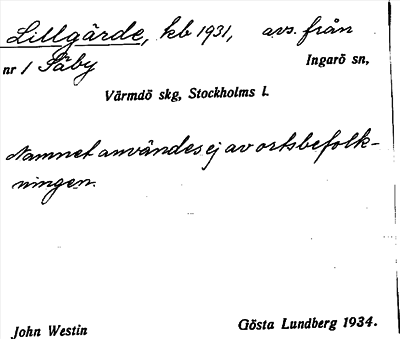 Lillgärde, kb 1931, avs. från
nr 1 Säby Ingarö sn,
Värmdö skg, Stockholms l.
Namnet användes ej av ortsbefolk-
ningen.
John Westin Gösta Lundberg 1934.